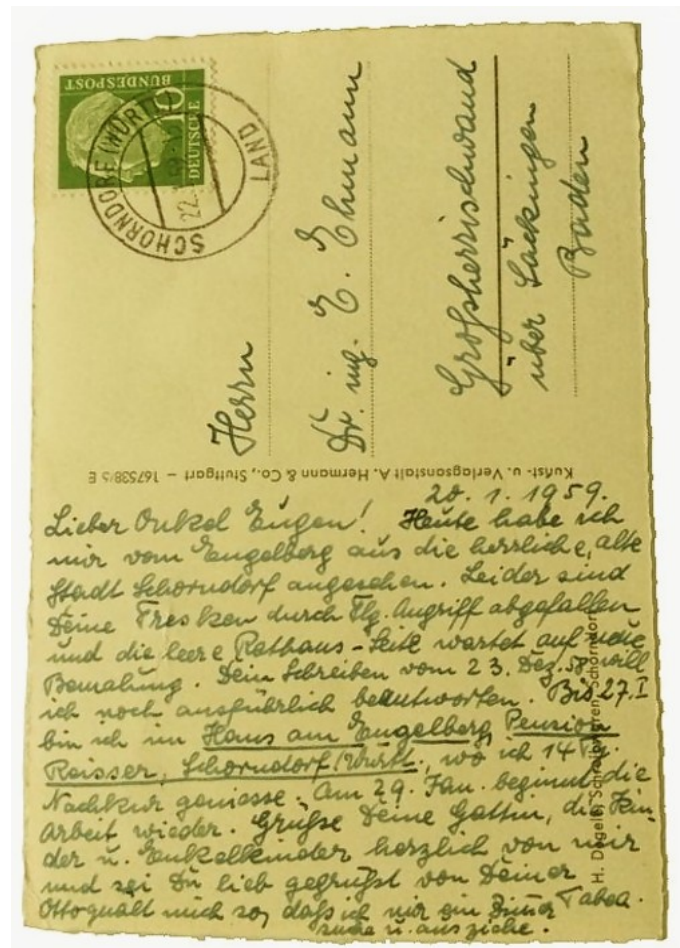 DEUTSCHE
BUNDESPOST
10
SCHORNDORF (WÜRTT)
LAND
22.
Herrn
Dr. ing. E. Ehmann
Großherrischwand
über Säckingen
Baden
Kunst- u. Verlagsanstalt A. Hermann & Co., Stuttgart – 167538/5 E
20. 1. 1959.
Lieber Onkel Eugen! Heute habe ich
mir vom Engelberg aus die herrliche, alte
Stadt Schorndorf angesehen. Leider sind
Deine Fresken durch Flg. Angriff abgefallen
und die leere Rathaus-Seite wartet auf neue
Bemalung. Dein Schreiben vom 23. Dez. 58 will
ich noch ausführlich beantworten. Bis 27. I
bin ich im Haus am Engelberg, Pension
Reisser, Schorndorf/Württ., wo ich 14 Tg.
Nachkur geniesse. Am 29. Jan. beginnt die
Arbeit wieder. Grüße Deine Gattin, die Kin-
der u. Enkelkinder herzlich von mir
und sei Du lieb gegrüßt von Deiner
Tabea.
Otto quält mich so, daß ich mir ein Zimmer
suche u. ausziehe.
H. Degele, Schreibwaren, Schorndorf